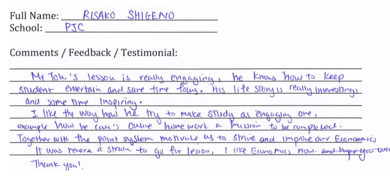 Full Name: RISAKO SHIGENO
School: PJC
Comments / Feedback / Testimonial:
Mr Toh's lesson is really engaging, he knows how to keep
student entertain and same time focus. His life story is really interesting
and same time inspiring.
I like the way how he try to make study as engaging one,
example how he calls online homework a mission to be completed.
Together with the point system motivate us to strive and improve our Economics
It was never a strain to go for lesson, I like Economics now. and hope you
Thank you!